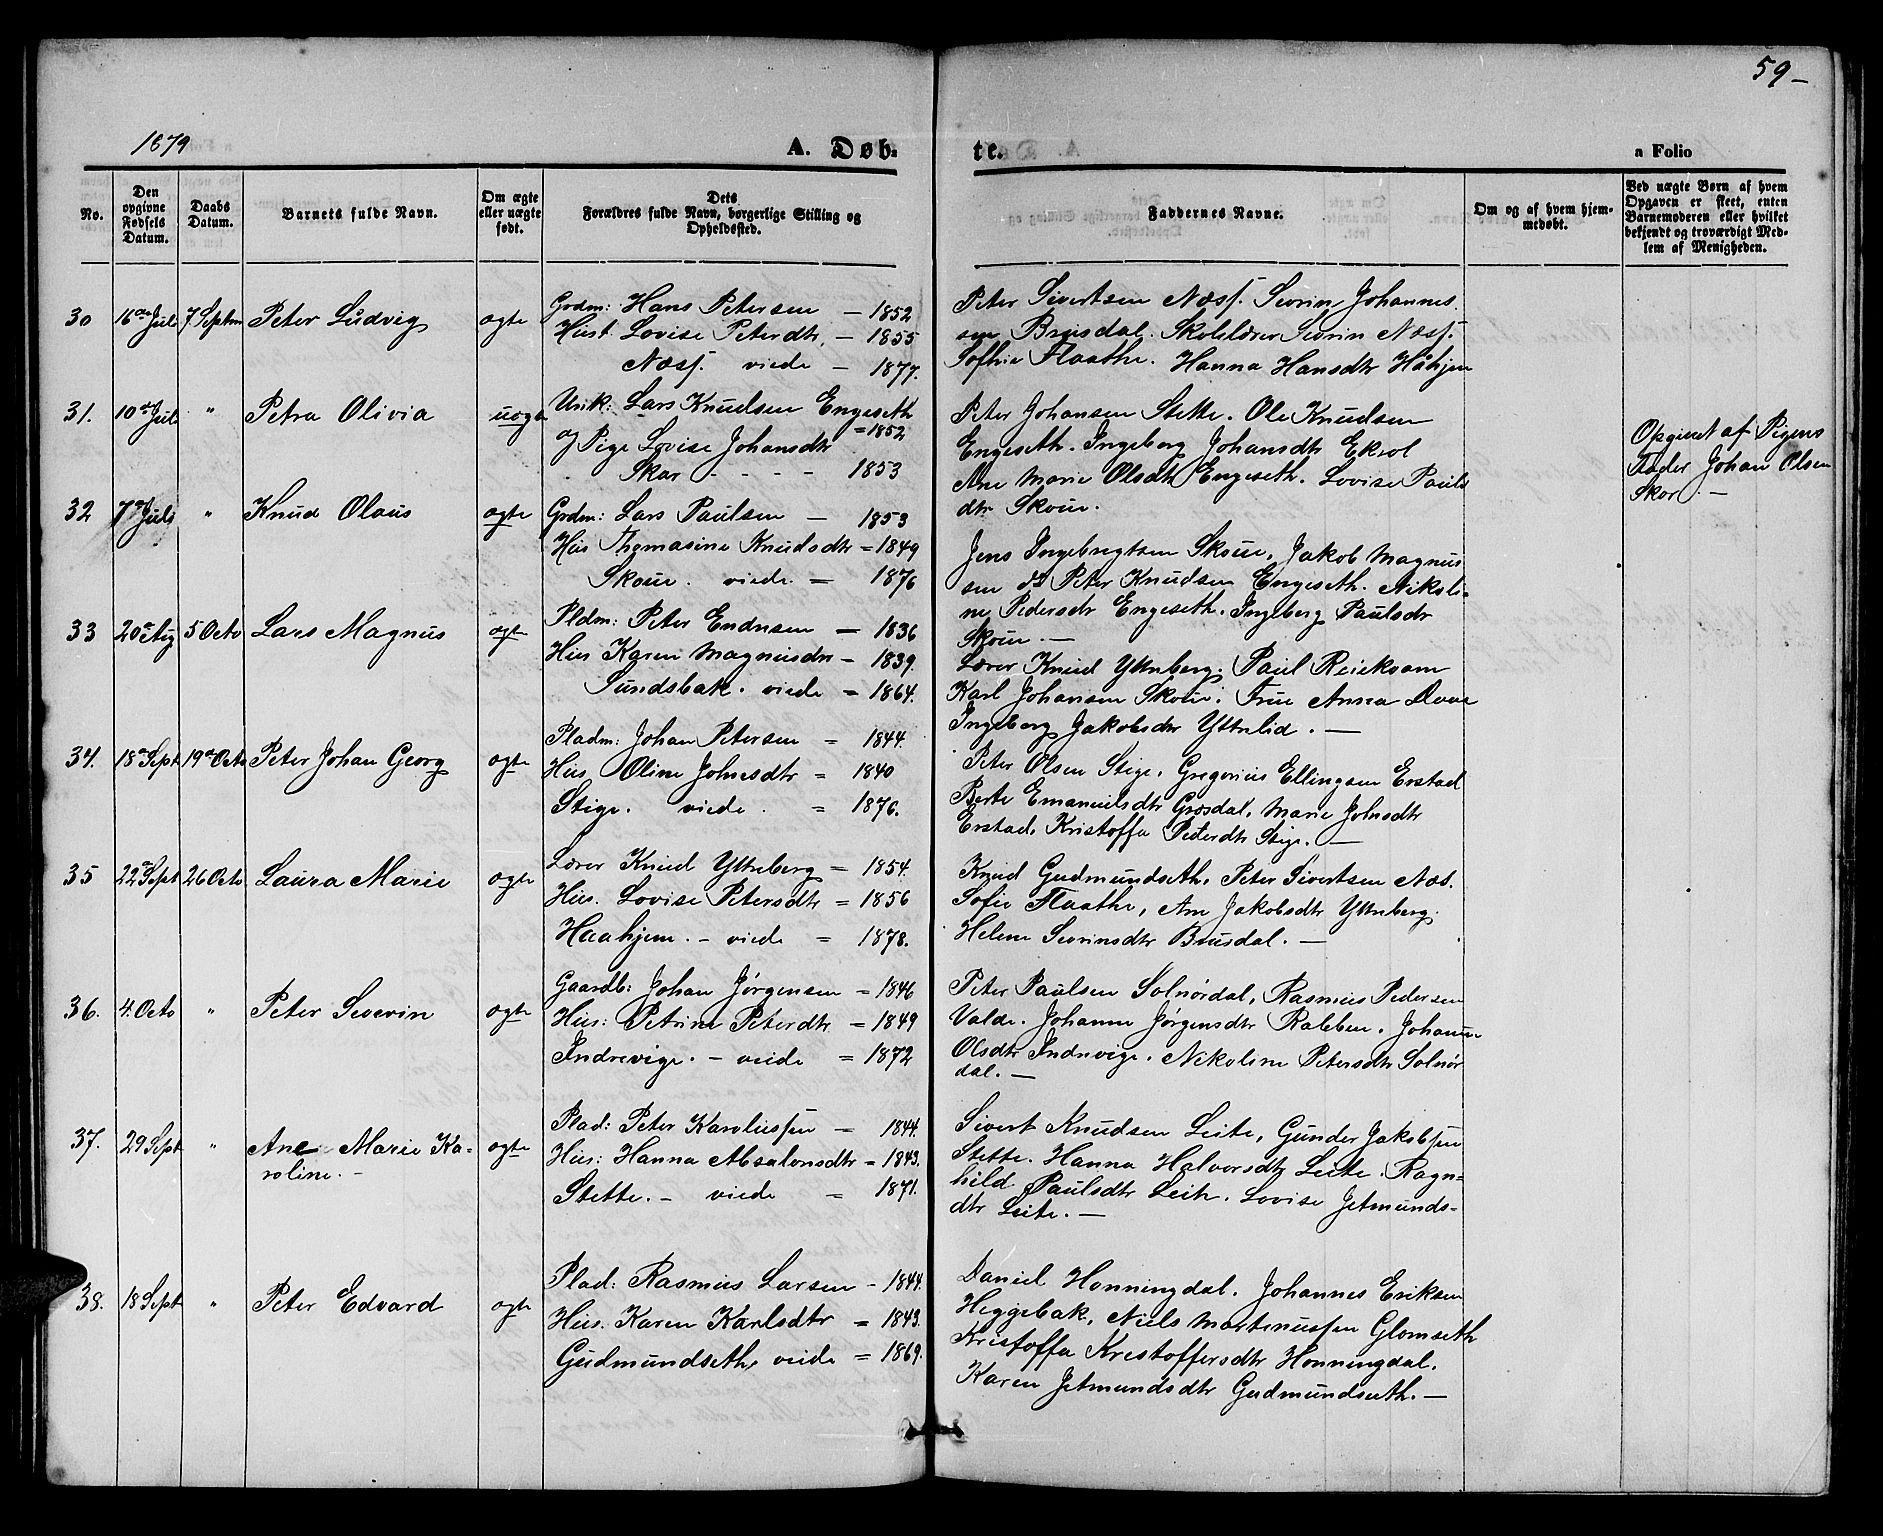 59-
1879
A. Døb-
te.
a Folio
No.
Den opgivne Fødsels Datum.
Daabs Datum.
Barnets fulde Navn.
Om ægte eller uægte født.
Dets Forældres fulde Navn, borgerlige Stilling og Opholdssted.
Faddernes Navne.
Om og af hvem hjemmedøbt.
Ved uægte Børn af hvem Opgaven er skeet, enten Barnemoderen eller hvilket bekjendt og troværdigt Medlem af Menigheden.
30 16de Juli 7 Septm Peter Ludvig ægte
Grdm: Hans Petersen — 1852
Hust. Lovise Peterdtr, — 1855
Næss. viede — 1877.
Peter Sivertsen Næss. Sevrin Johannes
sen Brusdal. Skolelærer Sevrin Næss.
Sofhie Flaathe. Hanna Hansdtr Håhjem
31. 10de Juli " Petra Olivia uægte
Unk: Lars Knudsen Engeseth
= 1852
og Pige Lovise Johansdtr
Skar - - - - 1853
Peter Johansen Stette. Ole Knudsen
Engeseth. Ingeberg Johansdtr Ekrol
Ane Marie Olsdtr Engeseth. Lovise Pauls
dtr Skoue.
Opgivet af Pigens
Fader Johan Olsen
Skor. —
32 7de Juli " Knud Olaus ægte
Grdm: Lars Paulsen — 1853
Hus Thomasine Knudsdtr = 1849
Skoue. viede. = 1876
Jens Ingebrigtsen Skoue, Jakob Magnus
sen ds Peter Knudsen Engeseth. Nikoli-
ne Pedersdr Engeseth. Ingeberg Paulsdr
Skoue. —
33 20de Aug 5 Octo Lars Magnus ægte
Pldm: Peter Endresen — 1836
Hus Karen Magnusdr — 1839.
Sundsbak. viede = 1864.
Lærer Knud Ytreberg. Paul Reiekvam
Karl Johansen Skoue. Frue Anna Daae
Ingeberg Jakobsdtr Ytrelid. —
34. 18de Sept 19de Octo Peter Johan Georg ægte
Pladm: Johan Petersen = 1844.
Hus Oline Johnesdtr = 1840
Stige. viede. = 1876.
Peter Olsen Stige, Gregorius Ellingsen Erstad
Berte Emanuelsdtr Grøsdal, Marie Johnsdtr
Erstad, Kristoffa Peterdtr Stige. —
35 22de Sept 26 Octo Laura Marie ægte
Lærer Knud Ytreberg = 1854.
Hus. Lovise Petersdtr = 1856
Haahjem. - viede = 1878.
Knud Gudmundseth, Peter Sivertsen Næs.
Sofie Flaathe, Ane Jakobsdtr Ytreberg.
Helene Sevrinsdtr Brusdal. —
36. 4. Octo " Peter Severin ægte
Gaardb: Johan Jørgensen = 1846
Hus: Petrine Peterdtr = 1849
Indrevige. - viede = 1872
Peter Paulsen Solnørdal, Rasmus Pedersen
Valde. Johanne Jørgensdtr Rabben. Johanne
Olsdtr Indrevige. Nekoline Petersdtr Solnør
dal. —
37. 29 Sept " Ane Marie Ka-
roline. -
ægte
Plad: Peter Karolussen = 1844.
Hus: Hanna Absalonsdtr = 1843.
Stette. - viede = 1871.
Sivert Knudsen Leite, Gunder Jakobsen
Stette. Hanna Halvorsdtr Leite. Ragn-
hild Paulsdtr Leite. Lovise Jetmunds-
dtr Leite. —
38. 18 Sept " Peter Edvard ægte
Plad: Rasmus Larsen - 1844.
Hus. Karen Karlsdtr = 1843.
Gudmundseth, viede = 1869.
Daniel Honningdal. Johannes Eriksen
Heggebak, Niels Martinussen Glomseth
Kristoffa Kristoffersdtr Honningdal.
Karen Jetmundsdtr Gudmundseth. —